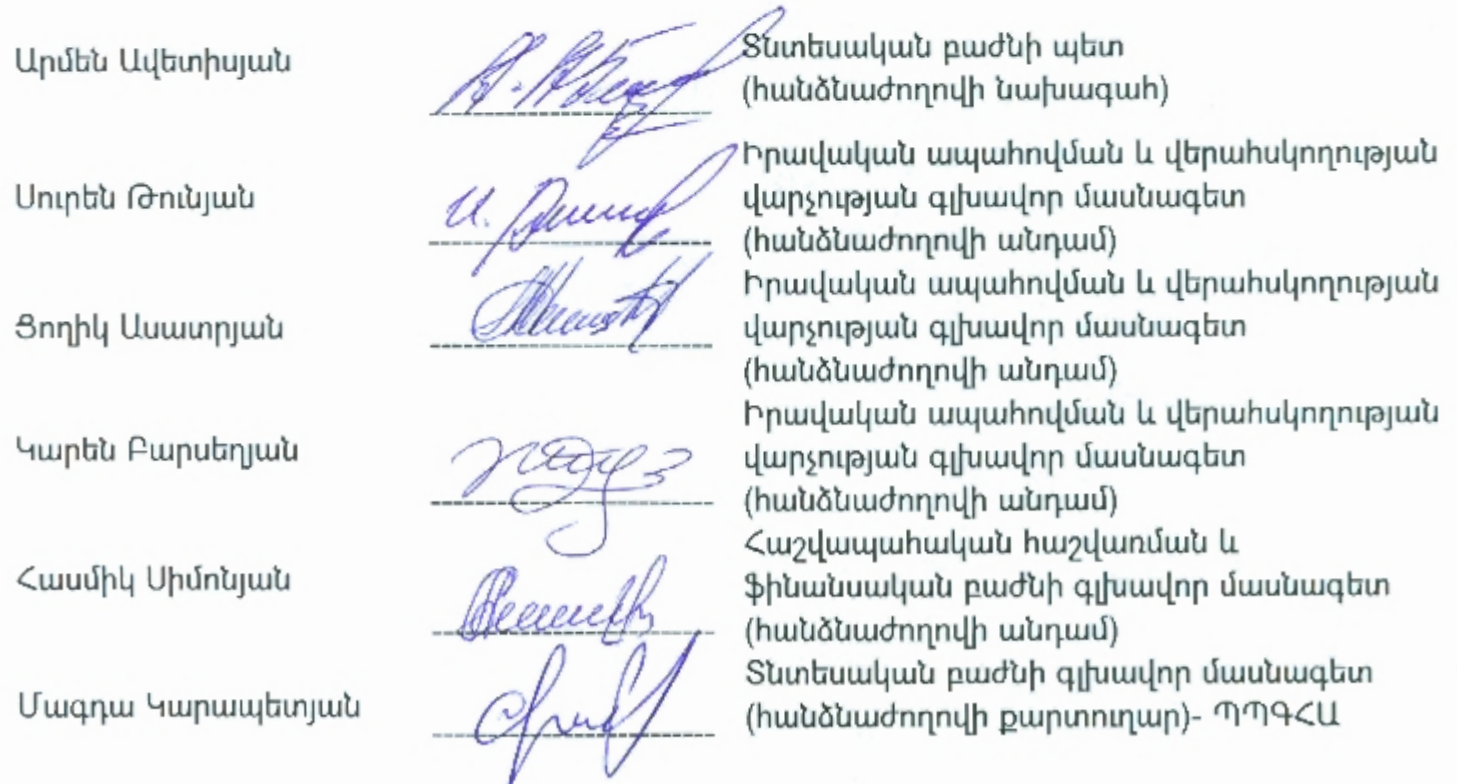 Արմեն Ավետիսյան
Տնտեսական բաժնի պետ
(հանձնաժողովի նախագահ)
Սուրեն Թունյան
Իրավական ապահովման և վերահսկողության
վարչության գլխավոր մասնագետ
(հանձնաժողովի անդամ)
Ցողիկ Ասատրյան
Իրավական ապահովման և վերահսկողության
վարչության գլխավոր մասնագետ
(հանձնաժողովի անդամ)
Կարեն Բարսեղյան
Իրավական ապահովման և վերահսկողության
վարչության գլխավոր մասնագետ
(հանձնաժողովի անդամ)
Հասմիկ Սիմոնյան
Հաշվապահական հաշվառման և
ֆինանսական բաժնի գլխավոր մասնագետ
(հանձնաժողովի անդամ)
Մագդա Կարապետյան
Տնտեսական բաժնի գլխավոր մասնագետ
(հանձնաժողովի քարտուղար)- ՊՊԳՀԱ